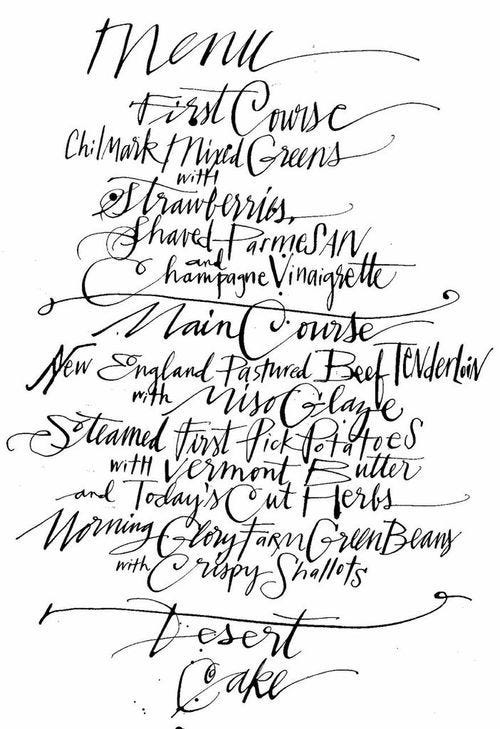 Menu
First Course
Chilmark Mixed Greens
with
Strawberries,
Shaved Parmesan
and
Champagne Vinaigrette
Main Course
New England Pastured Beef Tenderloin
with Miso Glaze
Steamed First Pick Potatoes
with Vermont Butter
and Today's Cut Herbs
Morning Glory Farm Green Beans
with Crispy Shallots
Desert
Cake